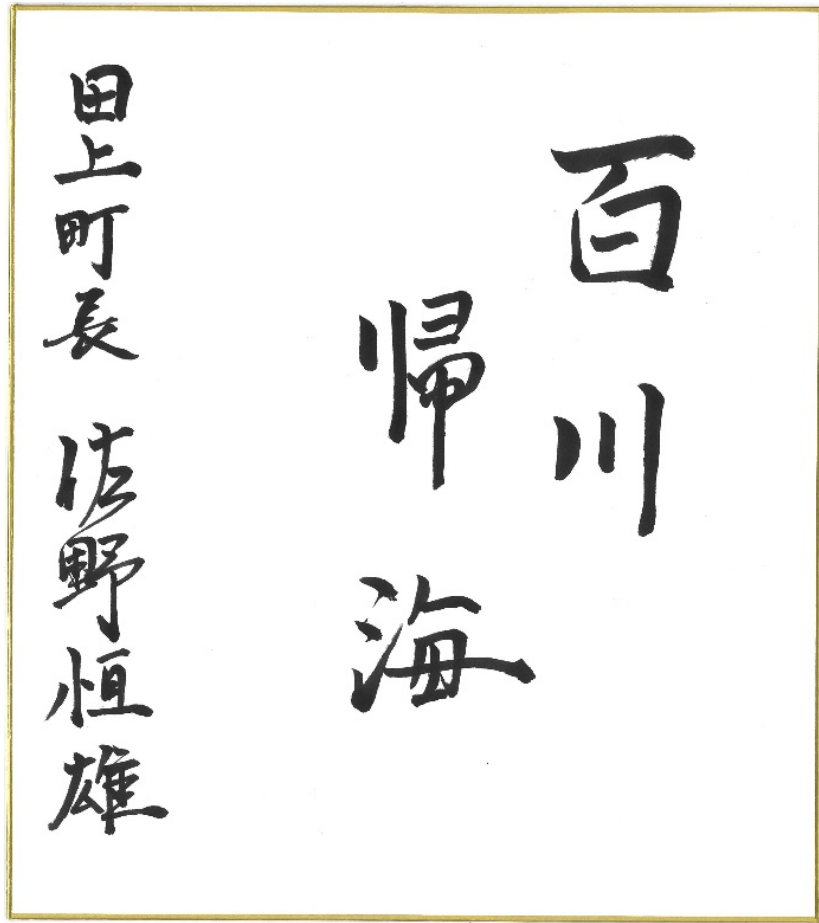 百川
帰海
田上町長 佐野恒雄